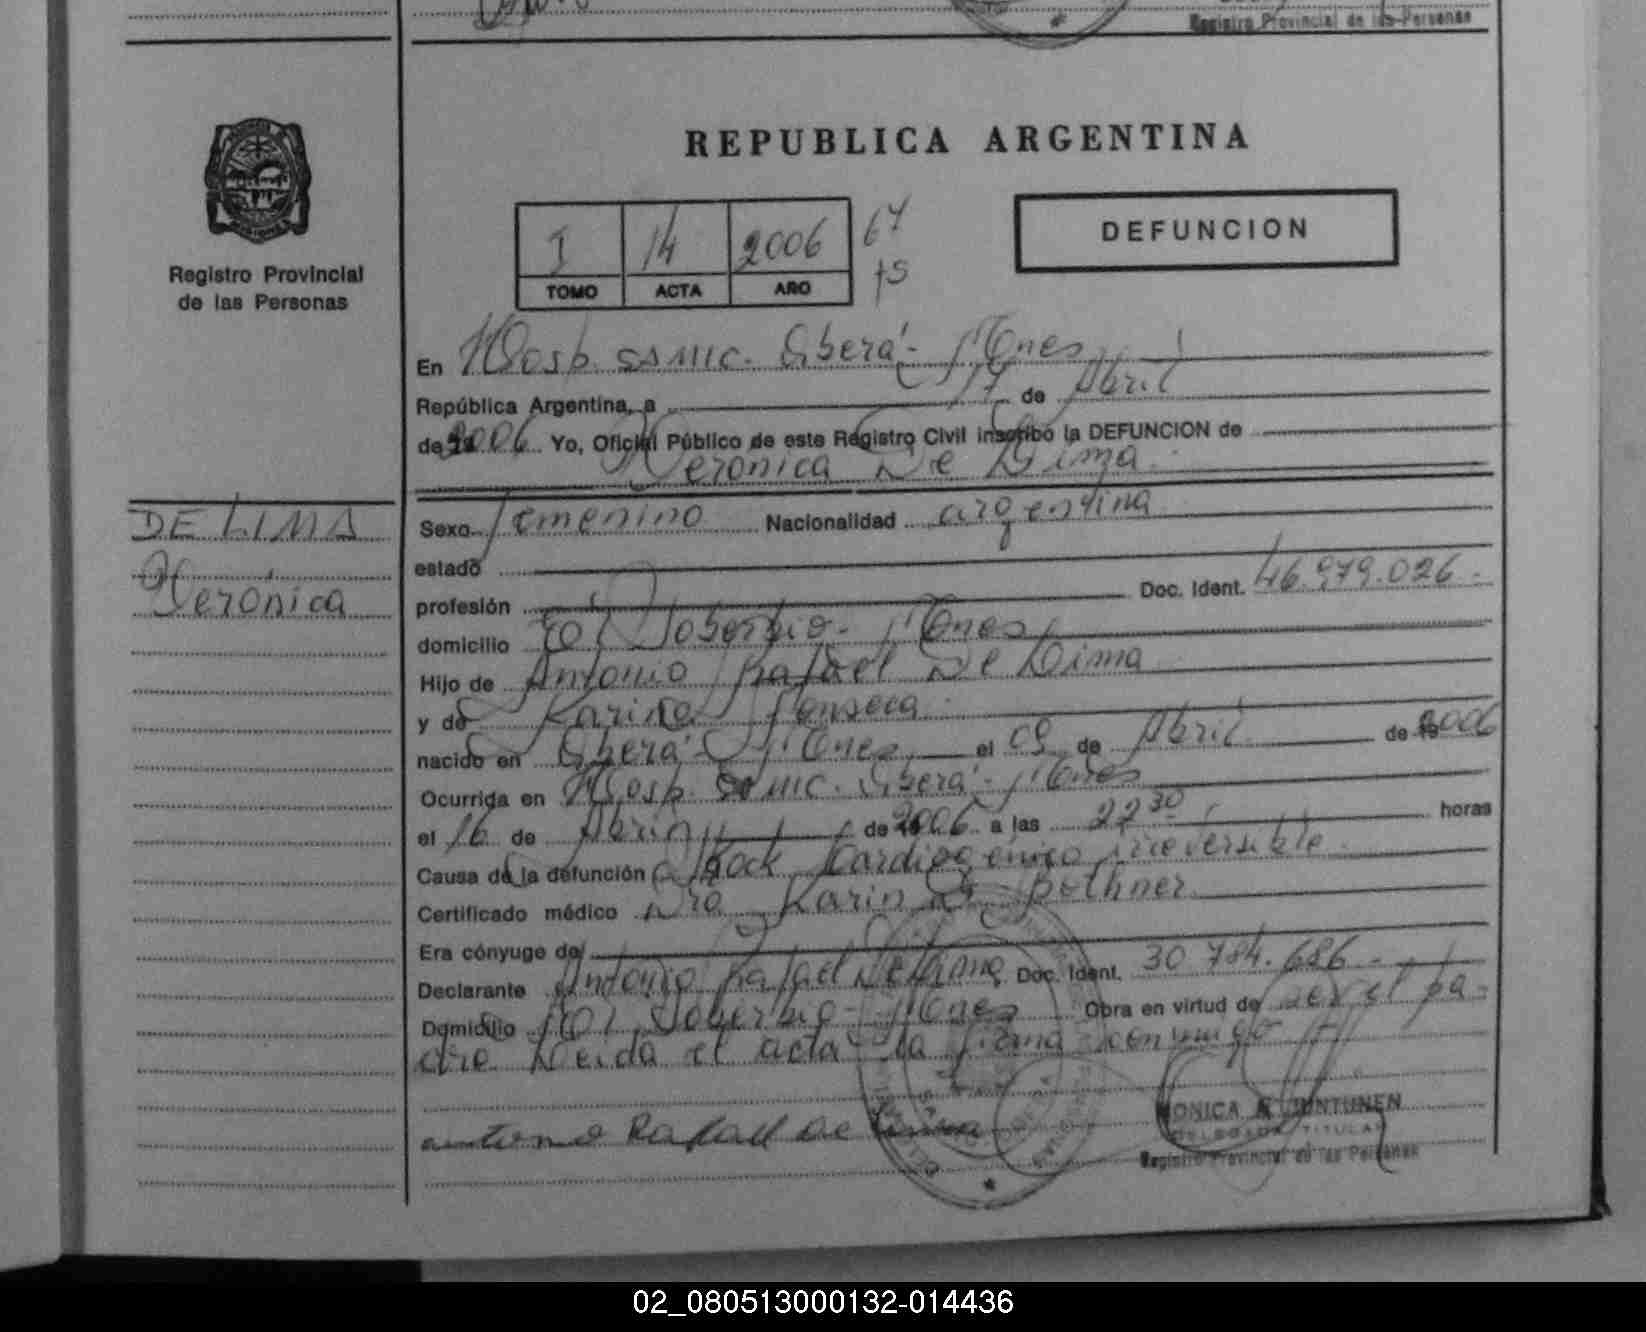 Registro Provincial de las Personas
REPUBLICA ARGENTINA
Registro Provincial
de las Personas
I 14 2006 67
TOMO ACTA AÑO
DEFUNCION
En Hosp. SAMIC. Oberá - Mnes
República Argentina, a 17 de Abril
de 2006 Yo, Oficial Público de este Registro Civil inscribo la DEFUNCION de
Verónica De Lima
DE LIMA
Verónica
Sexo femenino Nacionalidad argentina
estado
profesión Doc. Ident. 46.979.026.-
domicilio El Soberbio - Mnes
Hijo de Antonio Rafael De Lima
y de Karina Fonseca
nacido en Oberá - Mnes el 09 de Abril de 2006
Ocurrida en Hosp. SAMIC. Oberá - Mnes
el 16 de Abril de 2006 a las 22 30 horas
Causa de la defunción Shock Cardiogénico irreversible.
Certificado médico Dra Karin Bothner
Era cónyuge de
Declarante Antonio Rafael De Lima Doc. Ident. 30.784.686.-
Domicilio El Soberbio - Mnes Obra en virtud de ser el pa-
dre Leida el acta la firma conmigo
antonio Rafael de lima
MONICA JUNTUNEN
DELEGADA TITULAR
Registro Provincial de las Personas
02_080513000132-014436